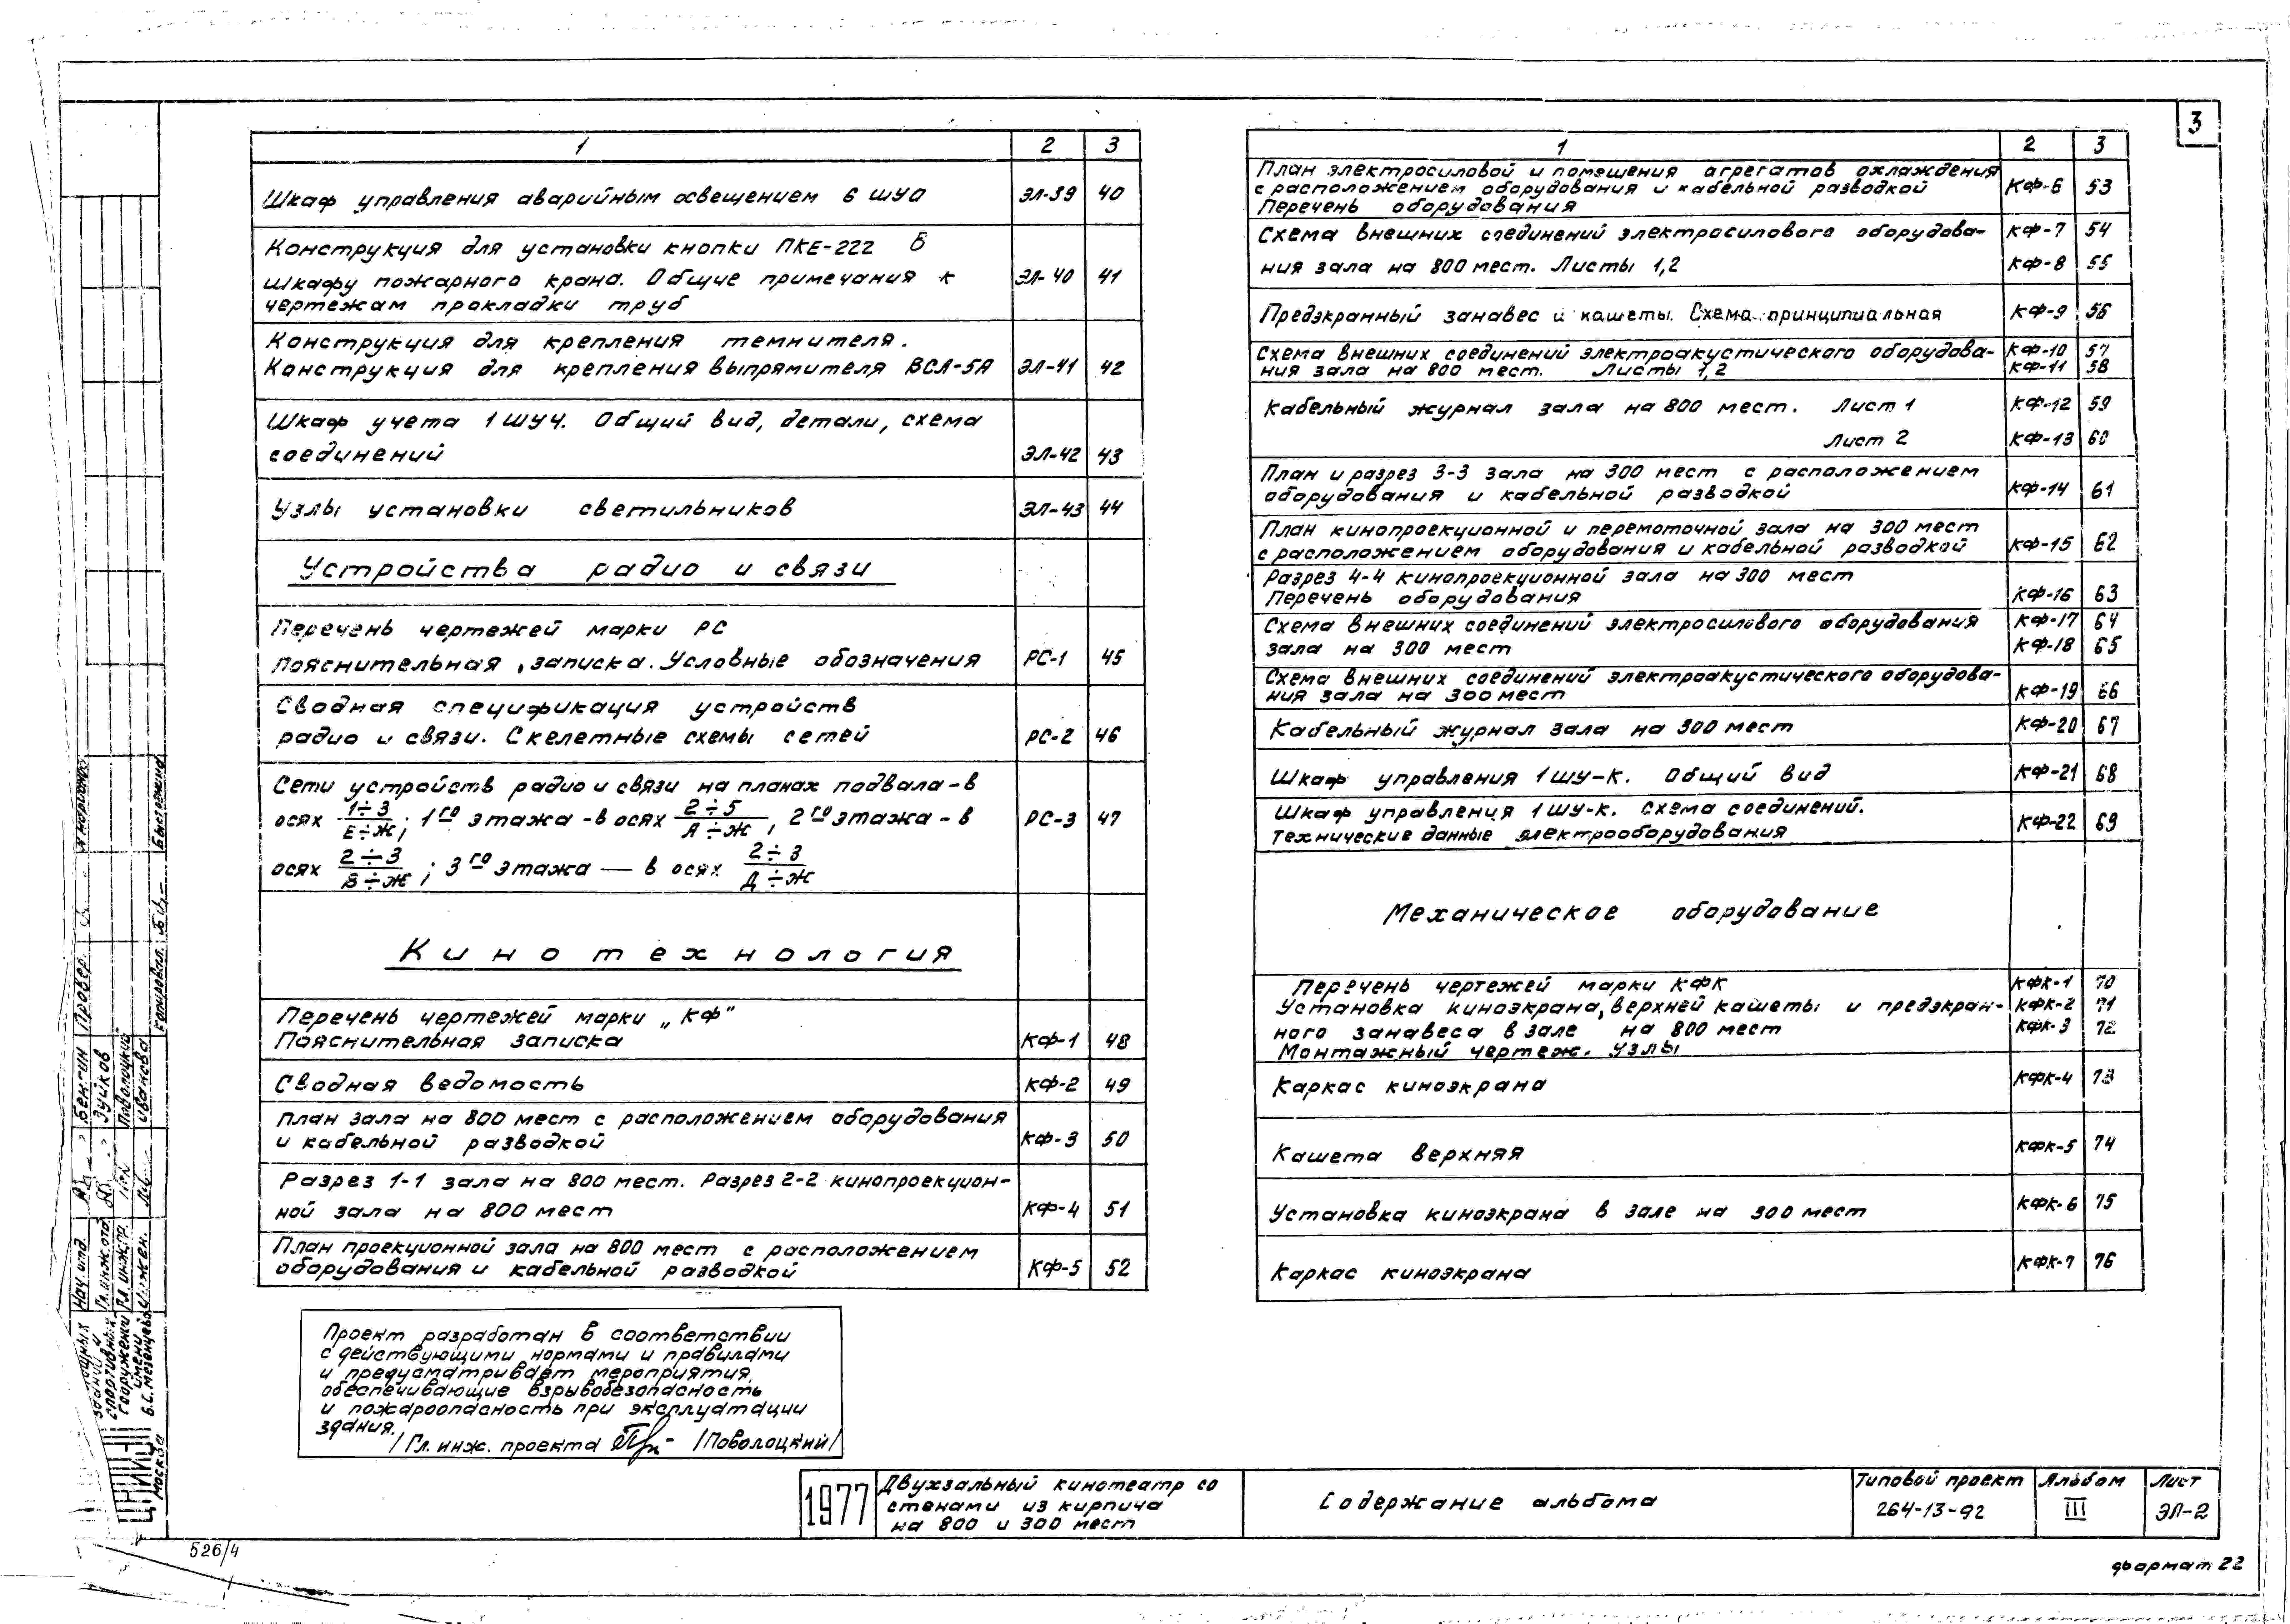 3
1 2 3
Шкаф управления аварийным освещением 6 ШУО ЭЛ-39 40
Конструкция для установки кнопки ПКЕ-222 в
шкафу пожарного крана. Общие примечания к ЭЛ-40 41
чертежам прокладки труб
Конструкция для крепления темнителя.
Конструкция для крепления выпрямителя ВСА-5А ЭЛ-41 42
Шкаф учета 1 ШУЧ. Общий вид, детали, схема
соединений ЭЛ-42 43
Узлы установки светильников ЭЛ-43 44
Устройства радио и связи
Перечень чертежей марки РС
Пояснительная записка. Условные обозначения РС-1 45
Сводная спецификация устройств
радио и связи. Скелетные схемы сетей РС-2 46
Сети устройств радио и связи на планах подвала - в
осях 1÷3/Е÷Ж; 1го этажа - в осях 2÷5/А÷Ж, 2го этажа - в РС-3 47
осях 2÷3/В÷Ж; 3го этажа — в осях 2÷3/Д÷Ж
Кинотехнология
Перечень чертежей марки „КФ"
Пояснительная записка КФ-1 48
Сводная ведомость КФ-2 49
План зала на 800 мест с расположением оборудования
и кабельной разводкой КФ-3 50
Разрез 1-1 зала на 800 мест. Разрез 2-2 кинопроекцион-
ной зала на 800 мест КФ-4 51
План проекционной зала на 800 мест с расположением
оборудования и кабельной разводкой КФ-5 52
Проект разработан в соответствии
с действующими нормами и правилами
и предусматривает мероприятия,
обеспечивающие взрывобезопасность
и пожароопасность при эксплуатации
здания.
/Гл. инж. проекта /Поволоцкий/
1 2 3
План электросиловой и помещения агрегатов охлаждения
с расположением оборудования и кабельной разводкой КФ-6 53
Перечень оборудования
Схема внешних соединений электросилового оборудова- КФ-7 54
ния зала на 800 мест. Листы 1,2 КФ-8 55
Предэкранный занавес и кашеты. Схема принципиальная КФ-9 56
Схема внешних соединений электроакустического оборудова- КФ-10 57
ния зала на 800 мест. Листы 1,2 КФ-11 58
Кабельный журнал зала на 800 мест. Лист 1 КФ-12 59
Лист 2 КФ-13 60
План и разрез 3-3 зала на 300 мест с расположением
оборудования и кабельной разводкой КФ-14 61
План кинопроекционной и перемоточной зала на 300 мест
с расположением оборудования и кабельной разводкой КФ-15 62
Разрез 4-4 кинопроекционной зала на 300 мест
Перечень оборудования КФ-16 63
Схема внешних соединений электросилового оборудования КФ-17 64
зала на 300 мест КФ-18 65
Схема внешних соединений электроакустического оборудова-
ния зала на 300 мест КФ-19 66
Кабельный журнал зала на 300 мест КФ-20 67
Шкаф управления 1 ШУ-К. Общий вид КФ-21 68
Шкаф управления 1 ШУ-К. Схема соединений.
Технические данные электрооборудования КФ-22 69
Механическое оборудование
Перечень чертежей марки КФК КФК-1 70
Установка киноэкрана, верхней кашеты и предэкран- КФК-2 71
ного занавеса в зале на 800 мест КФК-3 72
Монтажный чертеж. Узлы
Каркас киноэкрана КФК-4 73
Кашета верхняя КФК-5 74
Установка киноэкрана в зале на 300 мест КФК-6 75
Каркас киноэкрана КФК-7 76
1977
Двухзальный кинотеатр со
стенами из кирпича
на 800 и 300 мест
Содержание альбома
Типовой проект
264-13-92
Альбом
III
Лист
ЭЛ-2
формат 22
526/4
Нач. инд.
Гл. инж. отд. Зуйков
Гл. инж. пр. Поволоцкий
Инжен. Иванова
Провер.
Копировал:
спортивных
сооружений
имени
Б.С. Мезенцева
Москва